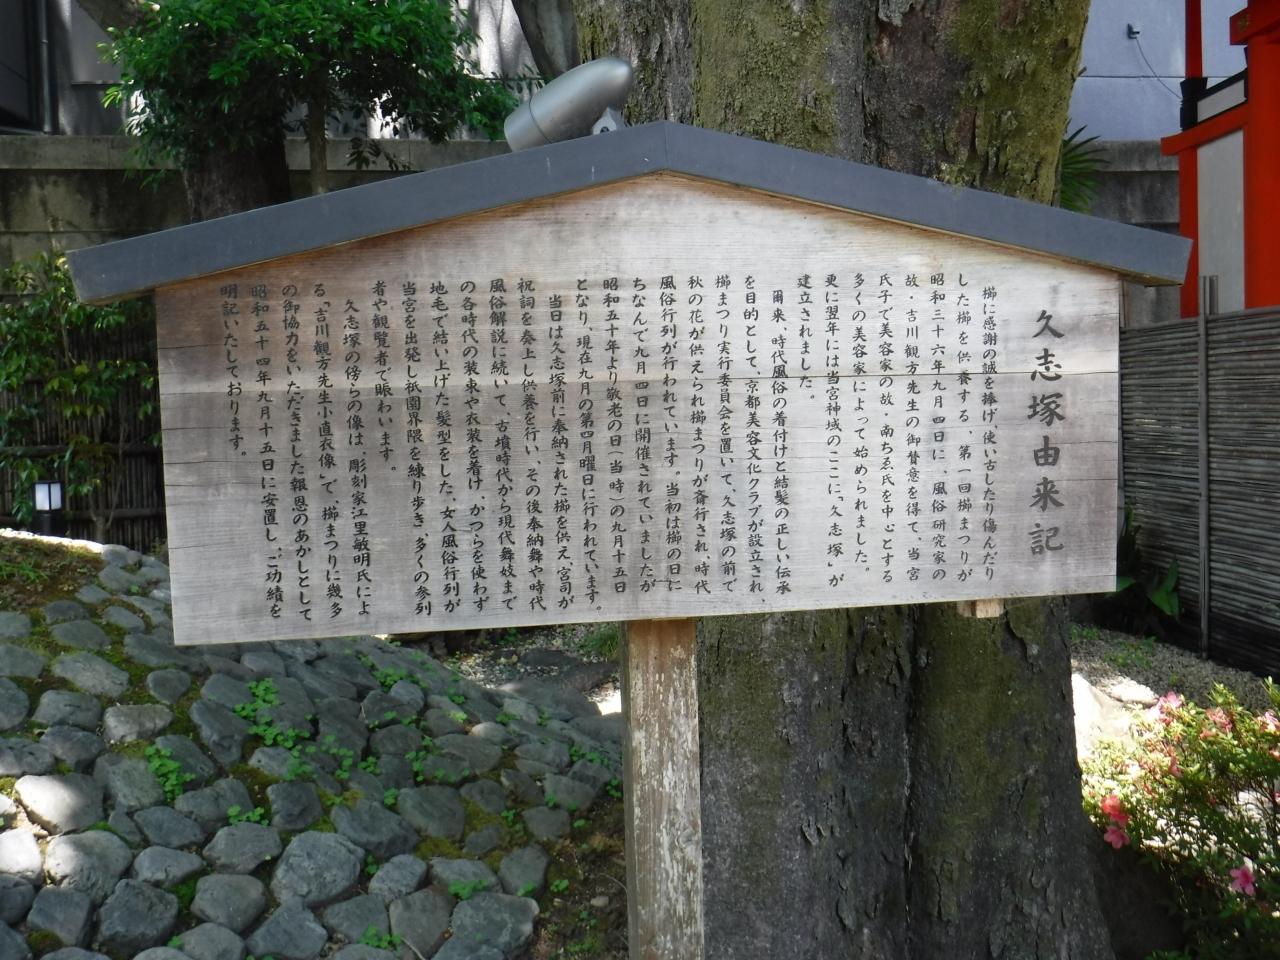 久志塚由来記
櫛に感謝の誠を捧げ、使い古したり傷んだり
した櫛を供養する、第一回櫛まつりが
昭和三十六年九月四日に、風俗研究家の
故・吉川観方先生の御賛意を得て、当宮
氏子で美容家の故・南ちゑ氏を中心とする
多くの美容家によって始められました。
更に翌年には当宮神域のここに、「久志塚」が
建立されました。
爾来、時代風俗の着付けと結髪の正しい伝承
を目的として、京都美容文化クラブが設立され、
櫛まつり実行委員会を置いて、久志塚の前で
秋の花が供えられ櫛まつりが斎行され、時代
風俗行列が行われています。当初は櫛の日に
ちなんで九月四日に開催されていましたが
昭和五十年より敬老の日(当時)の九月十五日
となり、現在九月の第四月曜日に行われています。
当日は久志塚前に奉納された櫛を供え、宮司が
祝詞を奏上し供養を行い、その後奉納舞や時代
風俗解説に続いて、古墳時代から現代舞妓まで
の各時代の装束や衣装を着け、かつらを使わず
地毛で結い上げた髪型をした、女人風俗行列が
当宮を出発し祇園界隈を練り歩き、多くの参列
者や観覧者で賑わいます。
久志塚の傍らの像は、彫刻家江里敏明氏によ
る「吉川観方先生小直衣像」で、櫛まつりに幾多
の御協力をいただきました報恩のあかしとして
昭和五十四年九月十五日に安置し、ご功績を
明記いたしております。